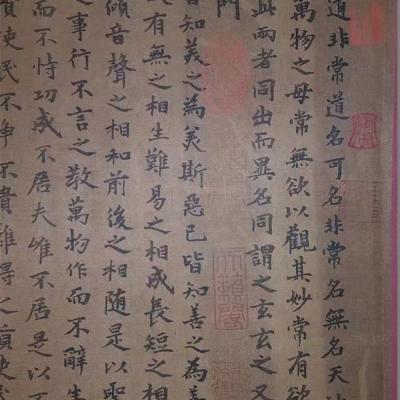 道非常道名可名非常名無名天
萬物之母常無欲以觀其妙常有欲
此兩者同出而異名同謂之玄玄之又
門
皆知美之為美斯惡已皆知善之為善
有無之相生難易之相成長短之相
傾音聲之相和前後之相隨是以聖
事行不言之教萬物作而不辭生
而不恃功成不居夫惟不居是以不
使民不爭不貴難得之貨使
天籟閣